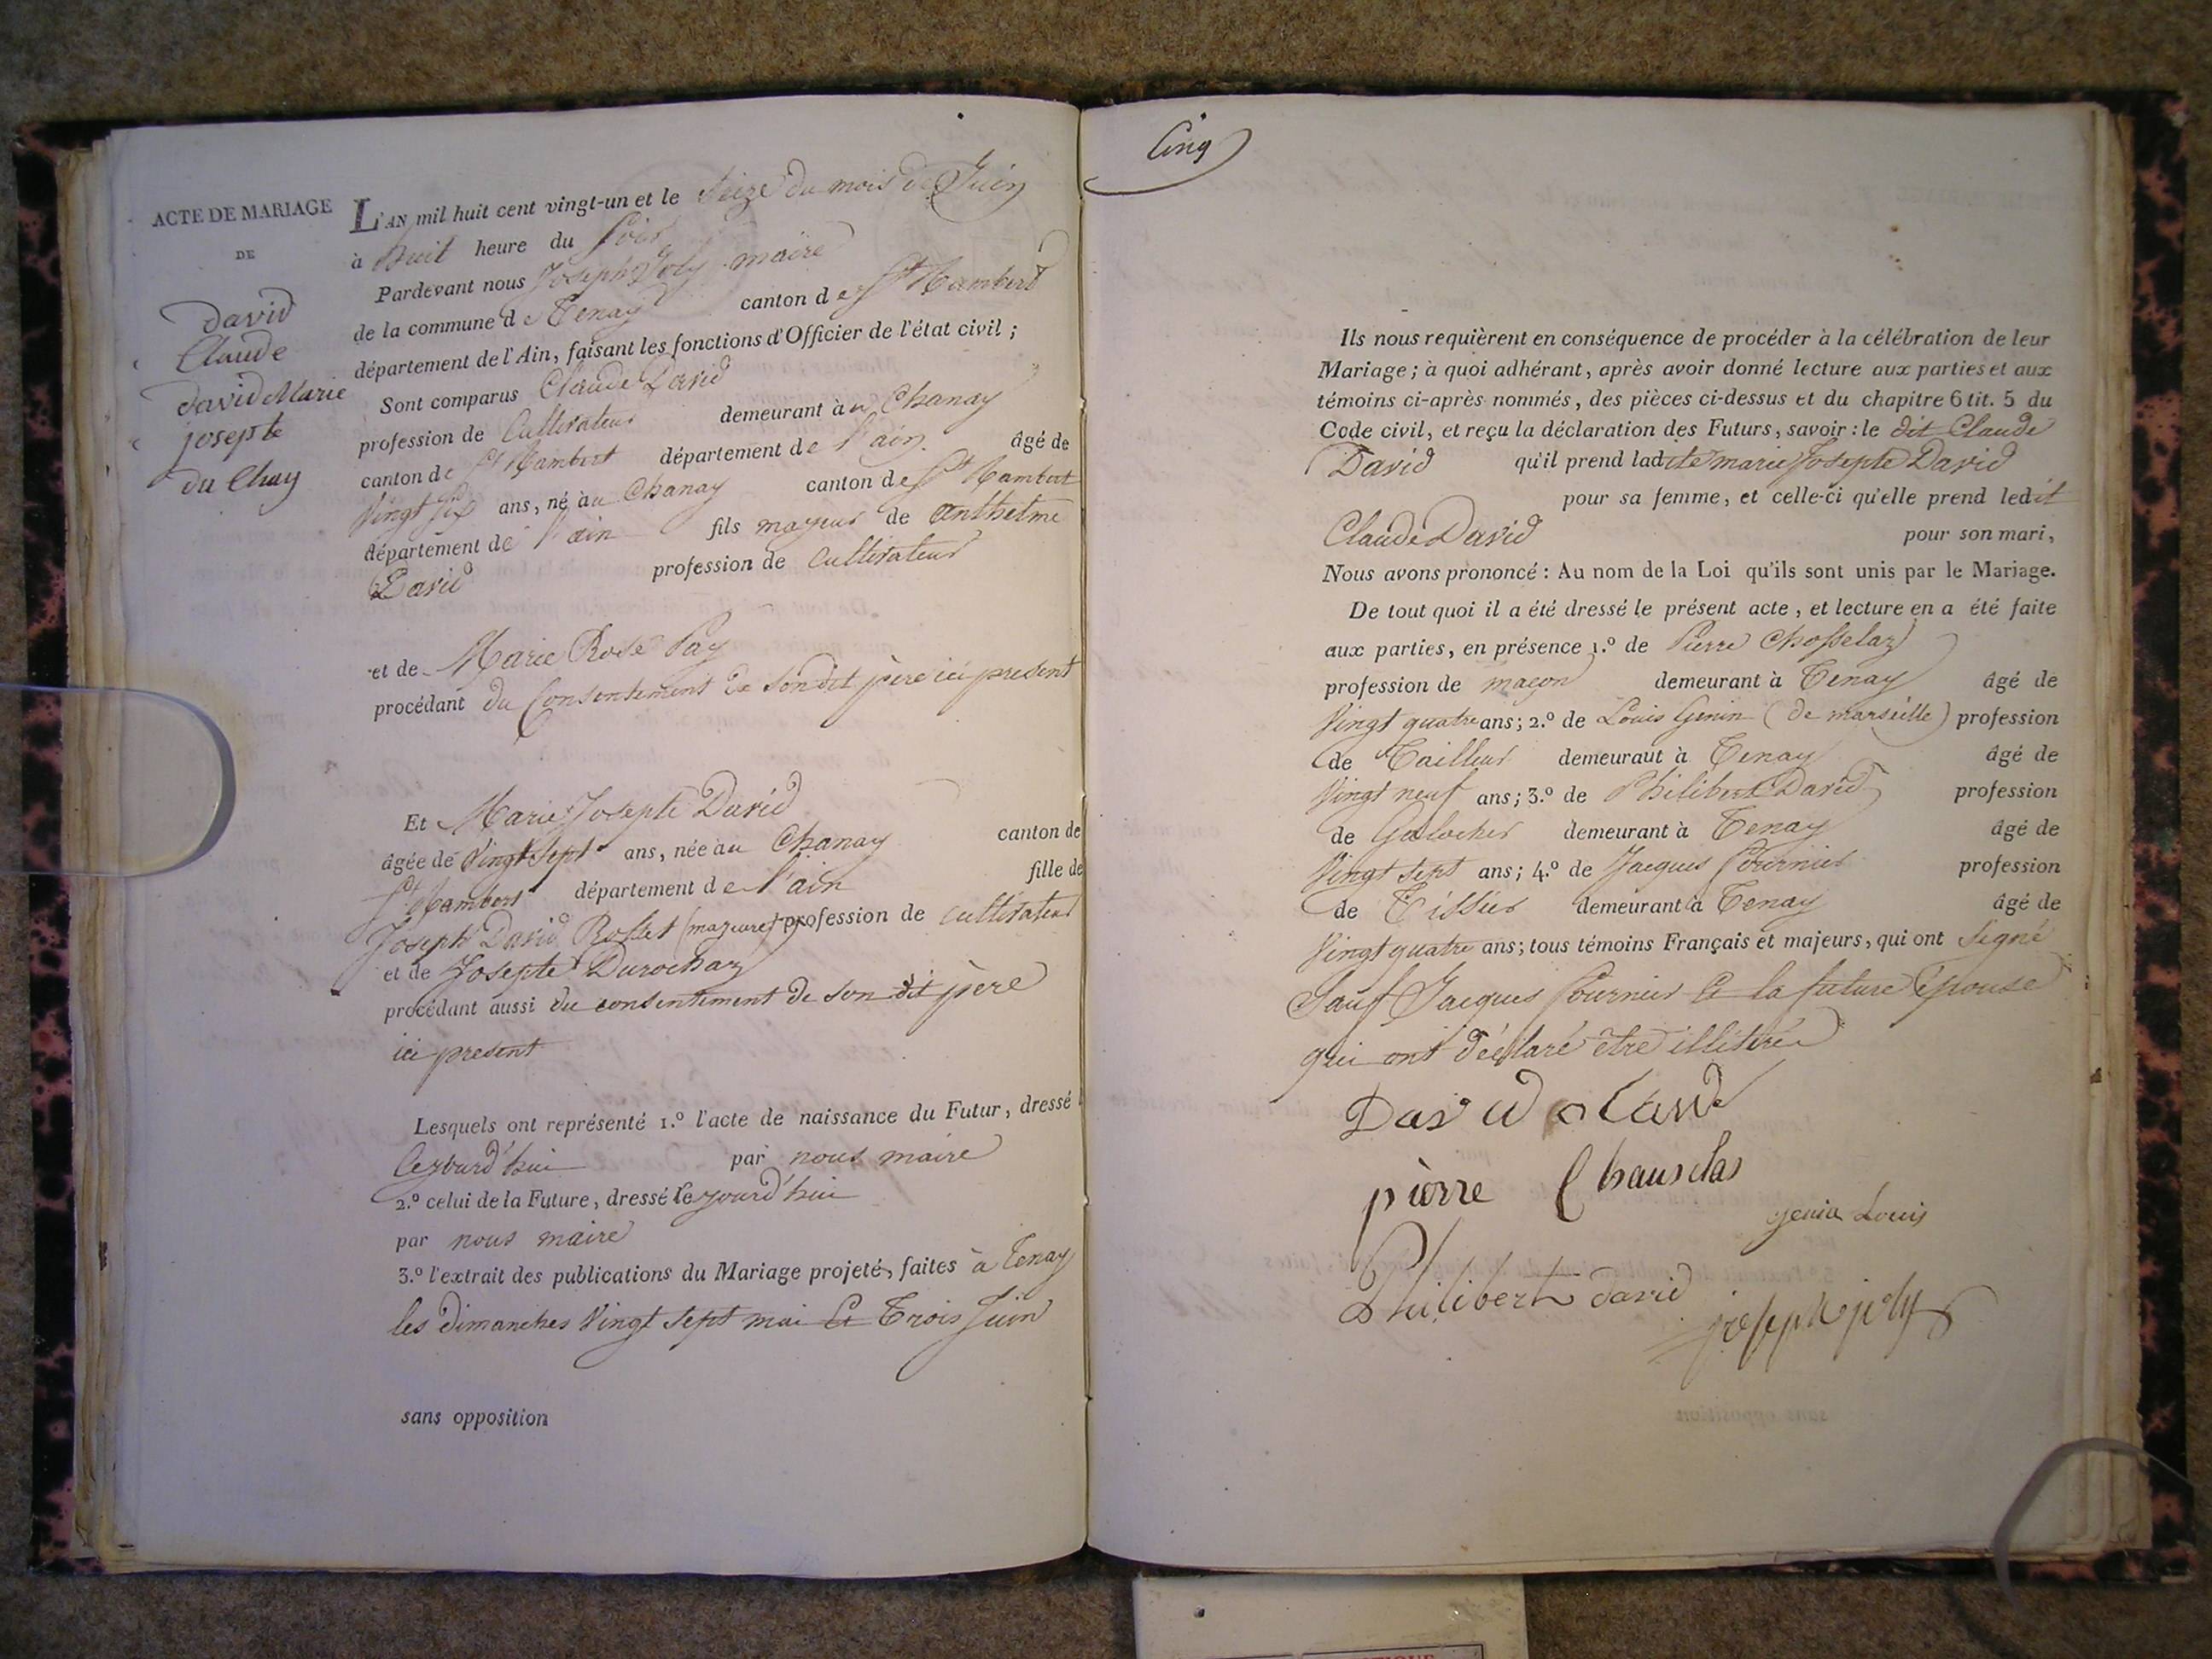 ACTE DE MARIAGE
DE
David
Claude
david Marie
josepte
du Chay
L'AN mil huit cent vingt-un et le Seize du mois de Juin
à huit heure du Soir
Pardevant nous Joseph Joly maire
de la commune de Tenay canton de St Rambert
département de l'Ain, faisant les fonctions d'Officier de l'état civil ;
Sont comparus Claude David
profession de Cultivateur demeurant à u Chanay
canton de St Rambert département de l'ain âgé de
Vingt Six ans, né à u Chanay canton de St Rambert
département de l'ain fils mayeur de Anthelme
David profession de Cultivateur
et de Marie Rose Pay
procédant du Consentement de Son dit père ici present
Et Marie Josepte David
âgée de Vingt Sept ans, née au Chanay canton de
St Rambert département de l'ain fille de
Joseph David Rosset (majeure) profession de cultivateur
et de Josepte Durochaz
procédant aussi du consentement de son dit père
ici present
Lesquels ont représenté 1.º l'acte de naissance du Futur, dressé
Cejourd'hui par nous maire
2.º celui de la Future, dressé cejourd'hui
par nous maire
3.º l'extrait des publications du Mariage projeté, faites à Tenay
les dimanches Vingt Sept mai Et Trois Juin
sans opposition
Cinq
Ils nous requièrent en conséquence de procéder à la célébration de leur
Mariage ; à quoi adhérant, après avoir donné lecture aux parties et aux
témoins ci-après nommés, des pièces ci-dessus et du chapitre 6 tit. 5 du
Code civil, et reçu la déclaration des Futurs, savoir : le dit Claude
David qu'il prend ladite marie Josepte David
pour sa femme, et celle-ci qu'elle prend ledit
Claude David pour son mari,
Nous avons prononcé : Au nom de la Loi qu'ils sont unis par le Mariage.
De tout quoi il a été dressé le présent acte, et lecture en a été faite
aux parties, en présence 1.º de Pierre Chosselaz
profession de maçon demeurant à Tenay âgé de
Vingt quatre ans ; 2.º de Louis Genin (de marseille) profession
de Tailleur demeurant à Tenay âgé de
Vingt neuf ans ; 3.º de Philibert David profession
de Galocher demeurant à Tenay âgé de
Vingt sept ans ; 4.º de Jacques Fournier profession
de Tissier demeurant à Tenay âgé de
Vingt quatre ans ; tous témoins Français et majeurs, qui ont Signé
Sauf Jacques Fournier Et la future Epouse
qui ont déclaré être illitérés
David Claude
pierre Chauselas
genin Louis
Philibert david
joseph joly